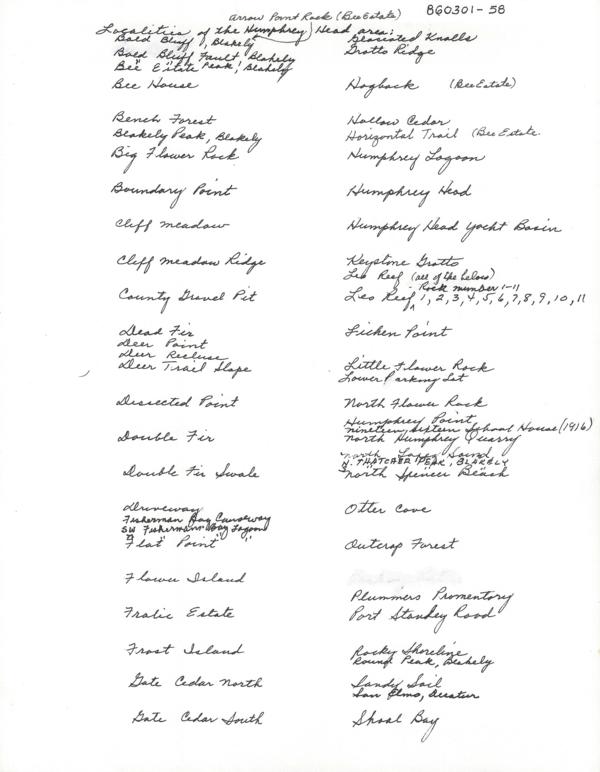 Arrow Point Rock (Bee Estate)
860301-58
Localities of the Humphrey Head area:
Bald Bluff, Blakely
Bald Bluff Fault, Blakely
Bee Estate Peak, Blakely
Bee House
Bench Forest
Blakely Peak, Blakely
Big Flower Rock
Boundary Point
Cliff Meadow
Cliff Meadow Ridge
County Gravel Pit
Dead Fir
Deer Point
Deer Recluse
Deer Trail Slope
Dissected Point
Double Fir
Double Fir Swale
Driveway
Fisherman Bay Causeway
SW Fisherman Bay Lagoon
Flat Point
Flower Island
Fralic Estate
Frost Island
Gate Cedar North
Gate Cedar South
Glaciated Knolls
Grotto Ridge
Hogback (Bee Estate)
Hollow Cedar
Horizontal Trail (Bee Estate
Humphrey Lagoon
Humphrey Head
Humphrey Head Yacht Basin
Keystone Grotto
Leo Reef (all of the below)
Rock number 1-11
Leo Reef 1, 2, 3, 4, 5, 6, 7, 8, 9, 10, 11
Lichen Point
Little Flower Rock
Lower Parking Lot
North Flower Rock
Humphrey Point
Nineteen Sixteen School House (1916)
North Humphrey Quarry
North Lopez Sound
N. THATCHER PEAK, BLAKELY
North Spencer Beach
Otter Cove
Outcrop Forest
Plummers Promentory
Port Standey Road
Rocky Shoreline
Round Peak, Blakely
Sandy Soil
San Elmo, Decatur
Shoal Bay